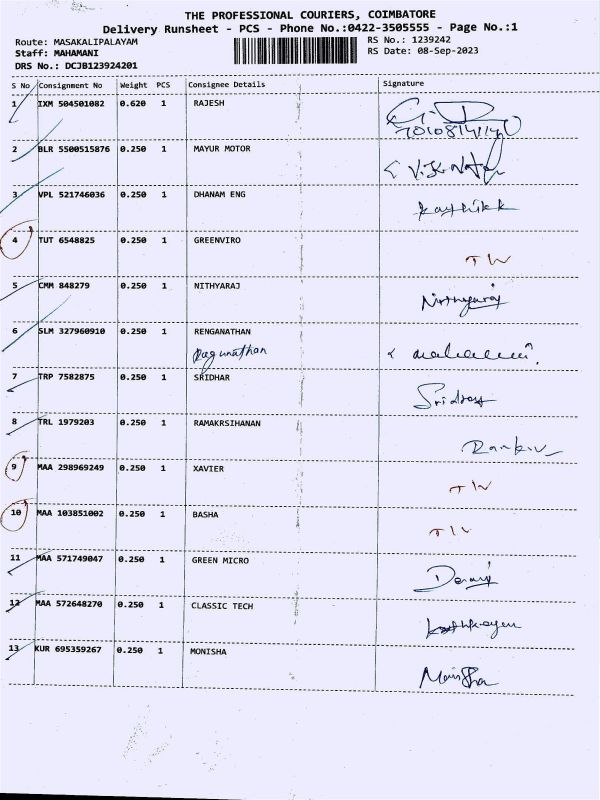 THE PROFESSIONAL COURIERS, COIMBATORE
Delivery Runsheet - PCS - Phone No.:0422-3505555 - Page No.:1
Route: MASAKALIPALAYAM RS No.: 1239242
Staff: MAHAMANI RS Date: 08-Sep-2023
DRS No.: DCJB123924201
S No Consignment No Weight PCS Consignee Details Signature
1 IXM 504501082 0.620 1 RAJESH
2 BLR 5500515876 0.250 1 MAYUR MOTOR
3 VPL 521746036 0.250 1 DHANAM ENG
4 TUT 6548825 0.250 1 GREENVIRO
5 CMM 848279 0.250 1 NITHYARAJ Nithyaraj
6 SLM 327960910 0.250 1 RENGANATHAN
Ragunathan
7 TRP 7582875 0.250 1 SRIDHAR Sridhar
8 TRL 1979203 0.250 1 RAMAKRSIHANAN
9 MAA 298969249 0.250 1 XAVIER
10 MAA 103851002 0.250 1 BASHA
11 MAA 571749047 0.250 1 GREEN MICRO
12 MAA 572648270 0.250 1 CLASSIC TECH
13 KUR 695359267 0.250 1 MONISHA Monisha